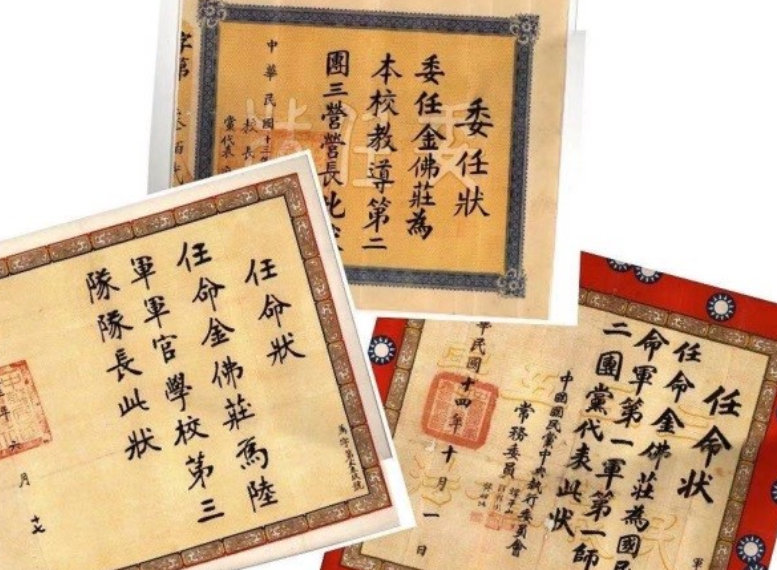 委任狀
委任金佛莊為
本校教導第二
團三營營長此
中華民國十三
校長
黨代表
字第
任命狀
任命金佛莊為陸
軍軍官學校第三
隊隊長此狀
月
任命狀
任命金佛莊為國民
命軍第一軍第一師
二團黨代表此狀
中國國民黨中央執行委員會
常務委員
華民國十四年十月一日